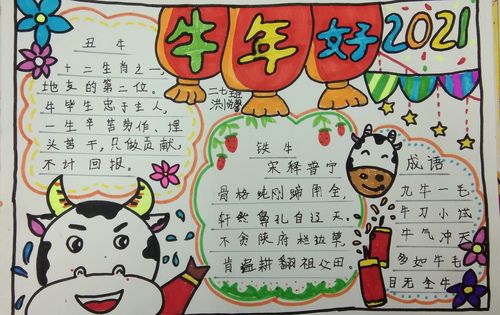 牛年好 2021
二七班
丑牛
十二生肖之一,
地支的第二位。
牛毕生忠于主人,
一生辛苦劳作、埋
头苦干,只做贡献,
不计回报。
铁牛
宋释普宁
骨格纯刚蹄角全,
轩然鼻孔自辽天。
不贪陕府栏草,
肯耕翻祖父田。
成语
九牛一毛
牛刀小试
牛气冲天
多如牛毛
目无全牛